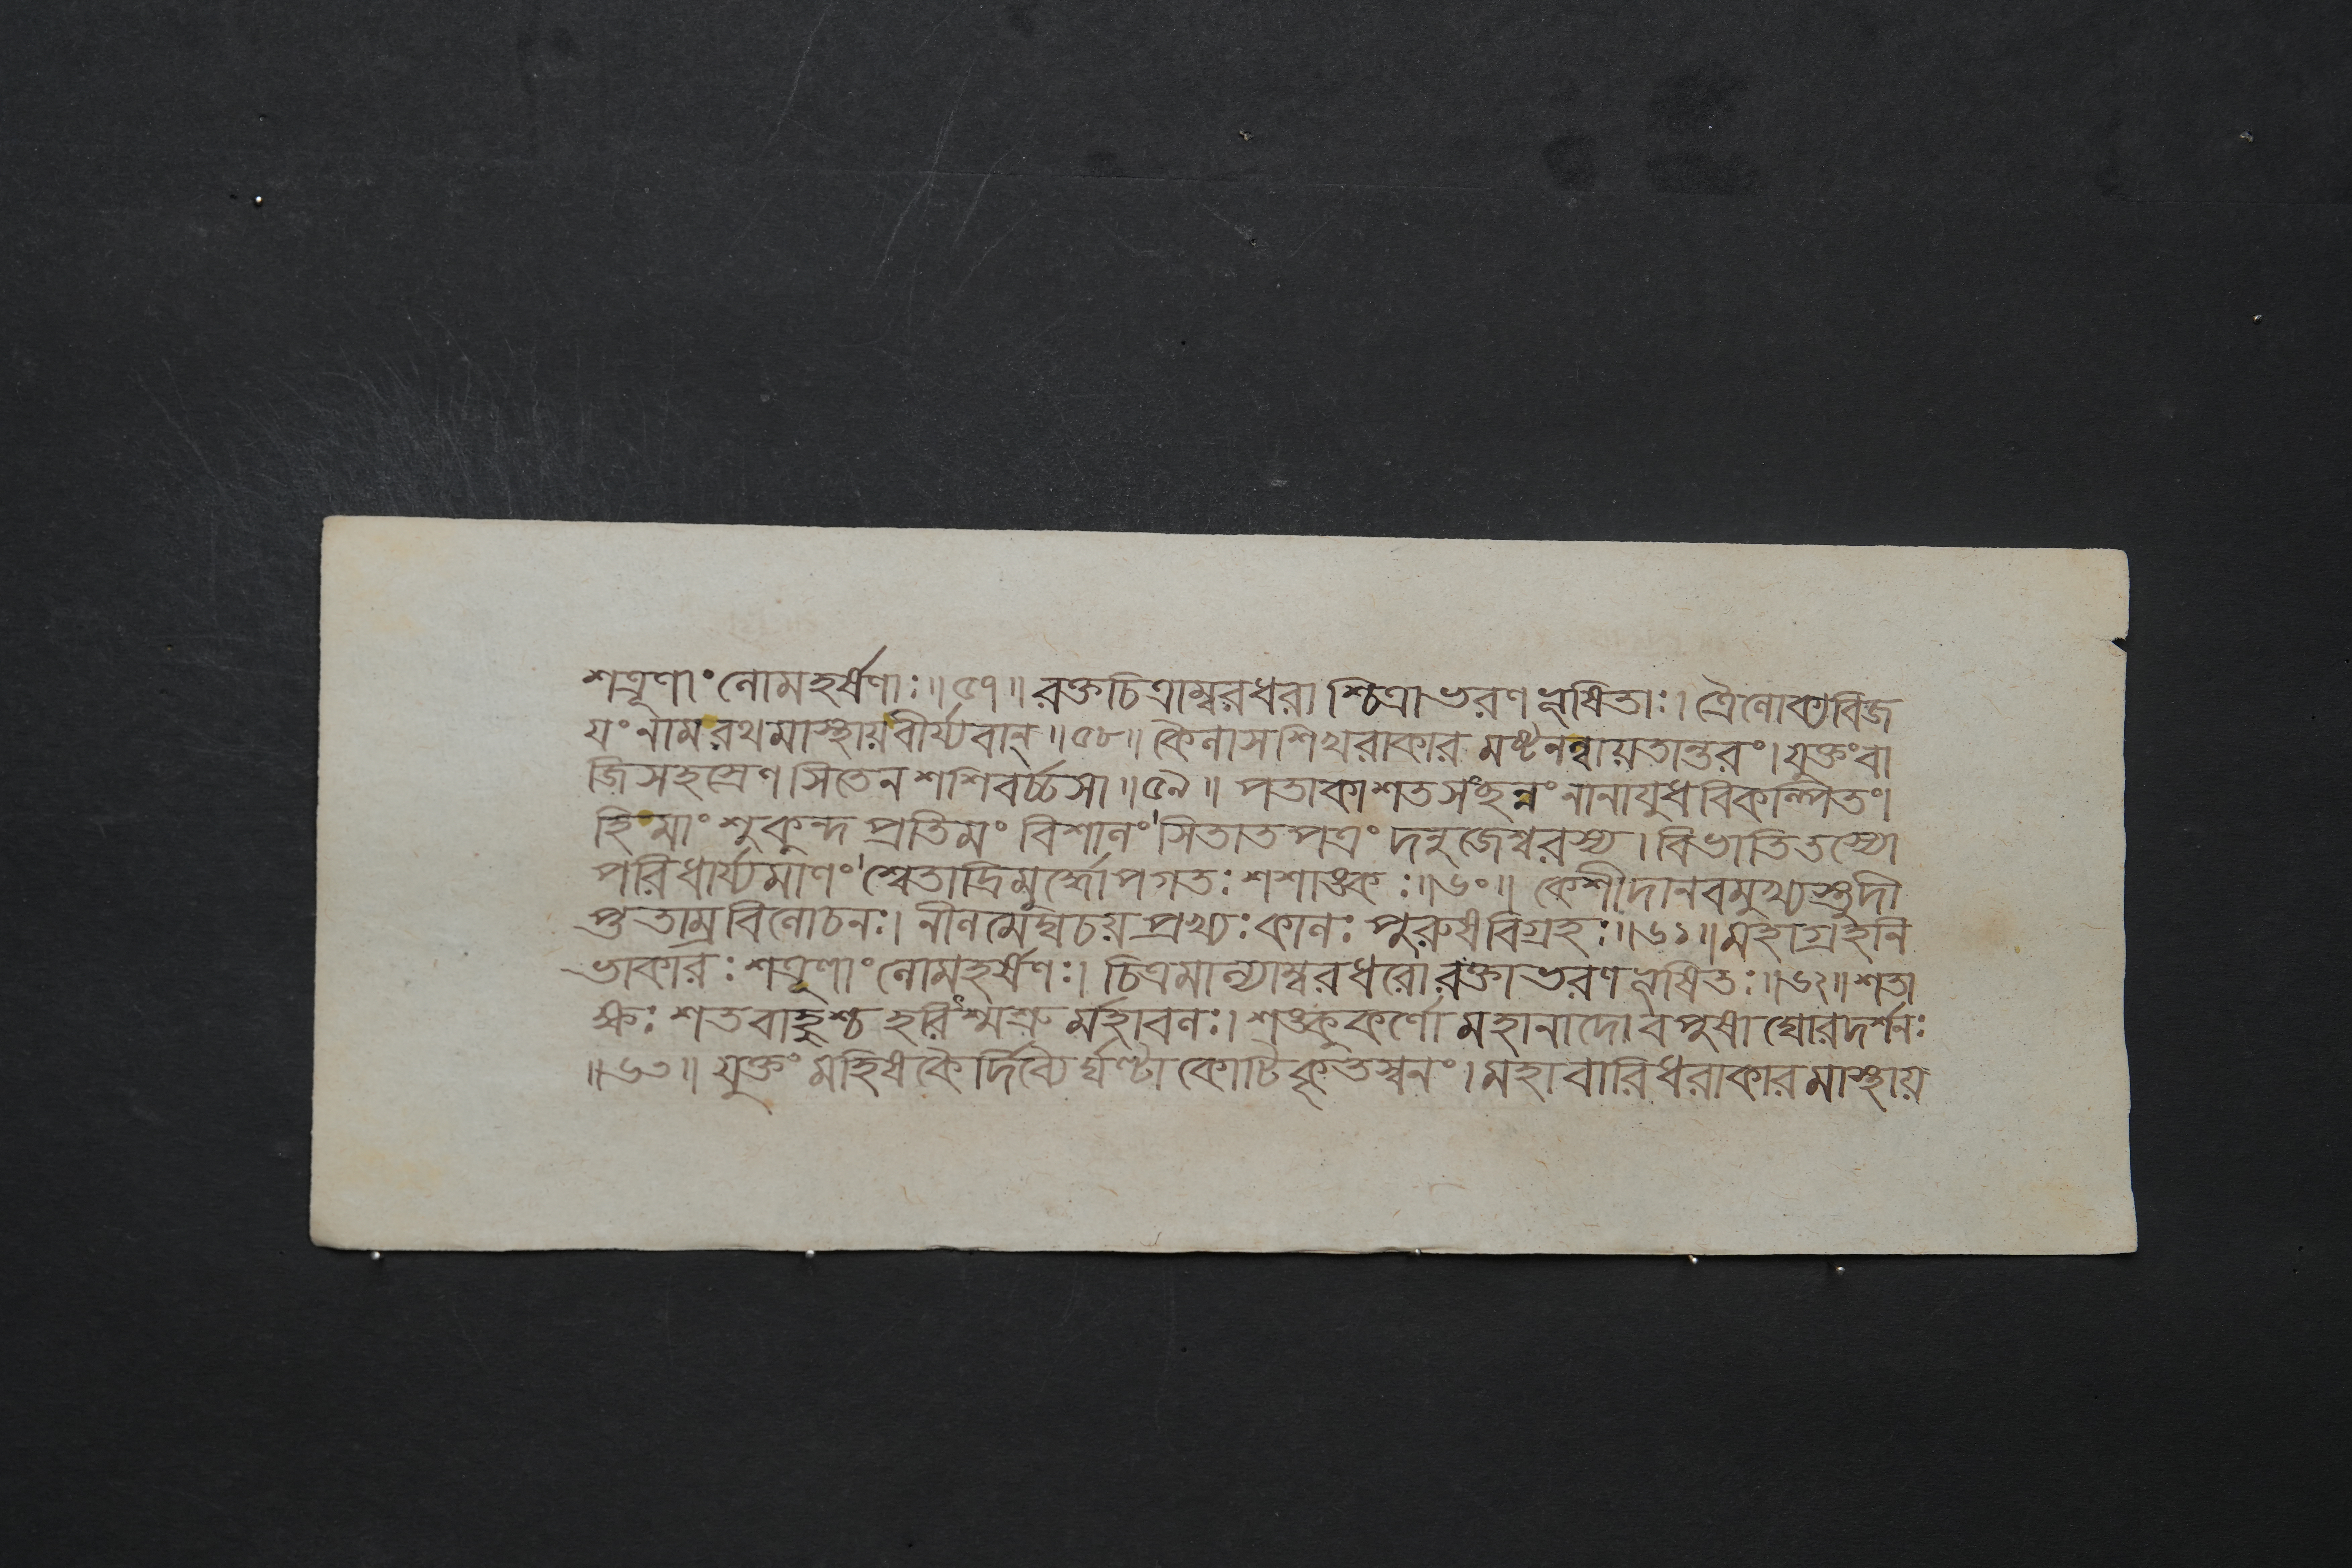 শত্রূণাং লোমহর্ষণাঃ॥৫৭॥ রক্তচিত্রাম্বরধরা শ্চিত্রাভরণভূষিতাঃ। ত্রৈলোক্যবিজ
যং নাম রথমাস্থায় বীর্য্যবান্॥৫৮॥ কৈলাসশিখরাকার মষ্টনল্বায়তান্তরং। যুক্তং বা
জিসহস্রেণ সিতেন শশিবর্চ্চসা॥৫৯॥ পতাকাশতসংছন্নং নানাযুধবিকল্পিতং।
হিমাংশুকুন্দ প্রতিমং বিশালং সিতাতপত্রং দনুজেশ্বরস্য। বিভাতি তস্যো
পরিধার্য্যমাণং শ্বেতাদ্রিমূর্দ্ধোপগতঃ শশাঙ্কঃ॥৬০॥ কেশীদানবমুখ্যস্তু দী
প্ততাম্রবিলোচনঃ। নীলমেঘচয় প্রখ্যঃ কালঃ পুরুষবিগ্রহঃ॥৬১॥ মহাগ্রহনি
ভাকারঃ শত্রূণাং লোমহর্ষণঃ। চিত্রমাল্যাম্বরধরো রক্তাভরণভূষিতঃ॥৬২॥ শতা
ক্ষঃ শতবাহুশ্চ হরিশ্মশ্রু র্মহাবলঃ। শঙ্কুকর্ণো মহানাদো বপুষা ঘোরদর্শনঃ
॥৬৩॥ যুক্তং মহিষকৈ র্দিব্যৈ র্ঘণ্টাকোটিকৃতস্বনং। মহাবারিধরাকারমাস্থায়